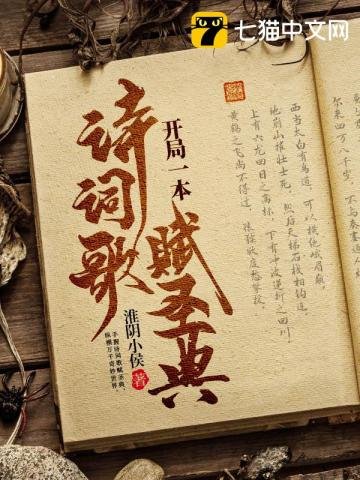 七猫中文网
开局一本
诗词歌
赋圣典
淮阴小侯 著
手握诗词歌赋圣典，
纵横万千奇妙世界。
尔来四万八千岁，
西当太白有鸟道，可以横绝峨眉巅，
地崩山摧壮士死，然后天梯石栈相钩连，
上有六龙回日之高标，下有冲波逆折之回川，
黄鹤之飞尚不得过，猿猱欲度愁攀援，